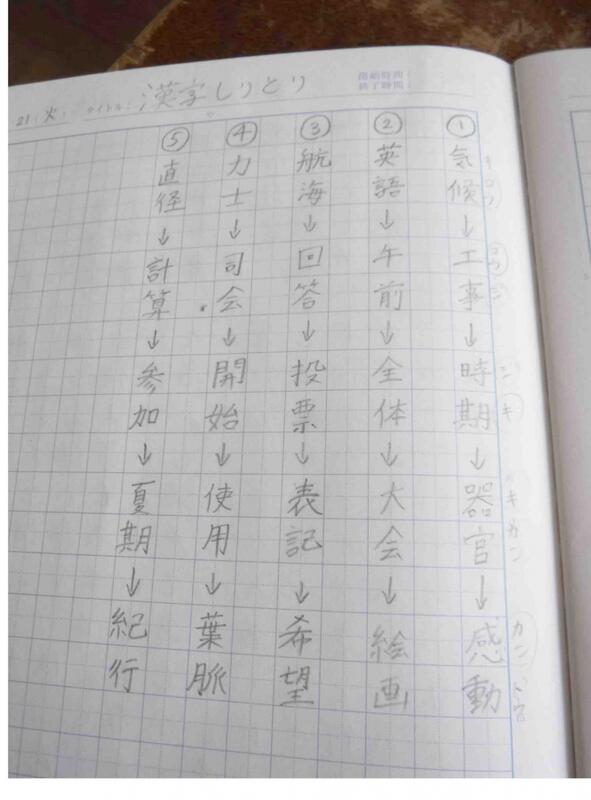 21(火) タイトル: 漢字しりとり 開始時間: 終了時間:
① 気候→工事→時期→器官→感動
コウ コウ ジ ジ キ キカン カン ドウ
② 英語→午前→全体→大会→絵画
③ 航海→回答→投票→表記→希望
④ 力士→司会→開始→使用→葉脈
⑤ 直径→計算→参加→夏期→紀行